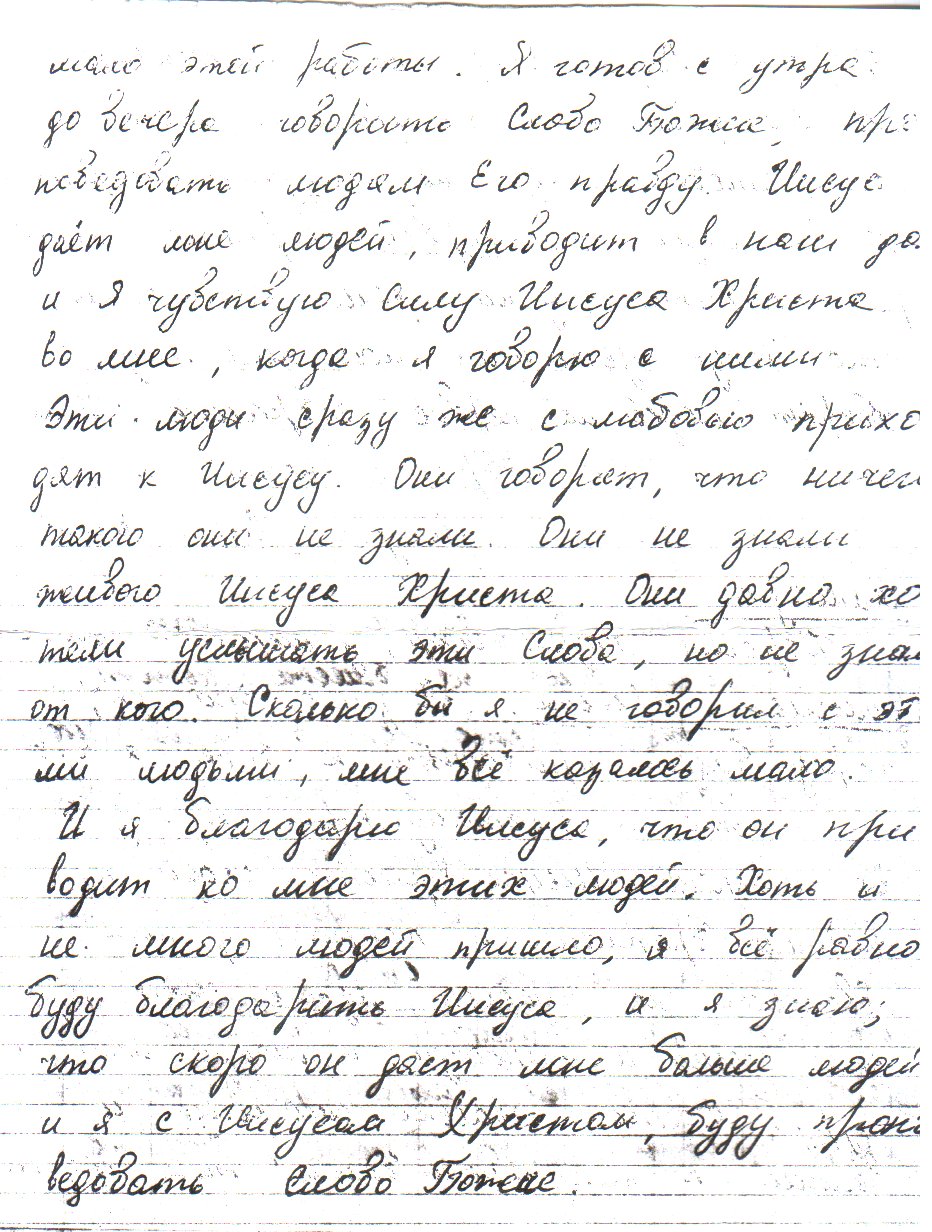 мало этой работы. Я готов с утра
до вечера говорить Слово Божие, про
поведовать людям Его правду. Иисус
даёт мне людей, приводит в наш до
и я чувствую Силу Иисуса Христа
во мне, когда я говорю с ними
Эти люди сразу же с любовью прихо
дят к Иисусу. Они говорят, что ничег
такого они не знали. Они не знали
живого Иисуса Христа. Они давно хо
тели услышать эти Слова, но не знал
от кого. Сколько бы я не говорил с эт
ми людьми, мне всё казалось мало.
И я благодарю Иисуса, что он при
водит ко мне этих людей. Хоть и
не много людей пришло, я всё равно
буду благодарить Иисуса, и я знаю;
что скоро он даст мне больше людей
и я с Иисусом Христом, буду пропо
ведовать Слово Божие.